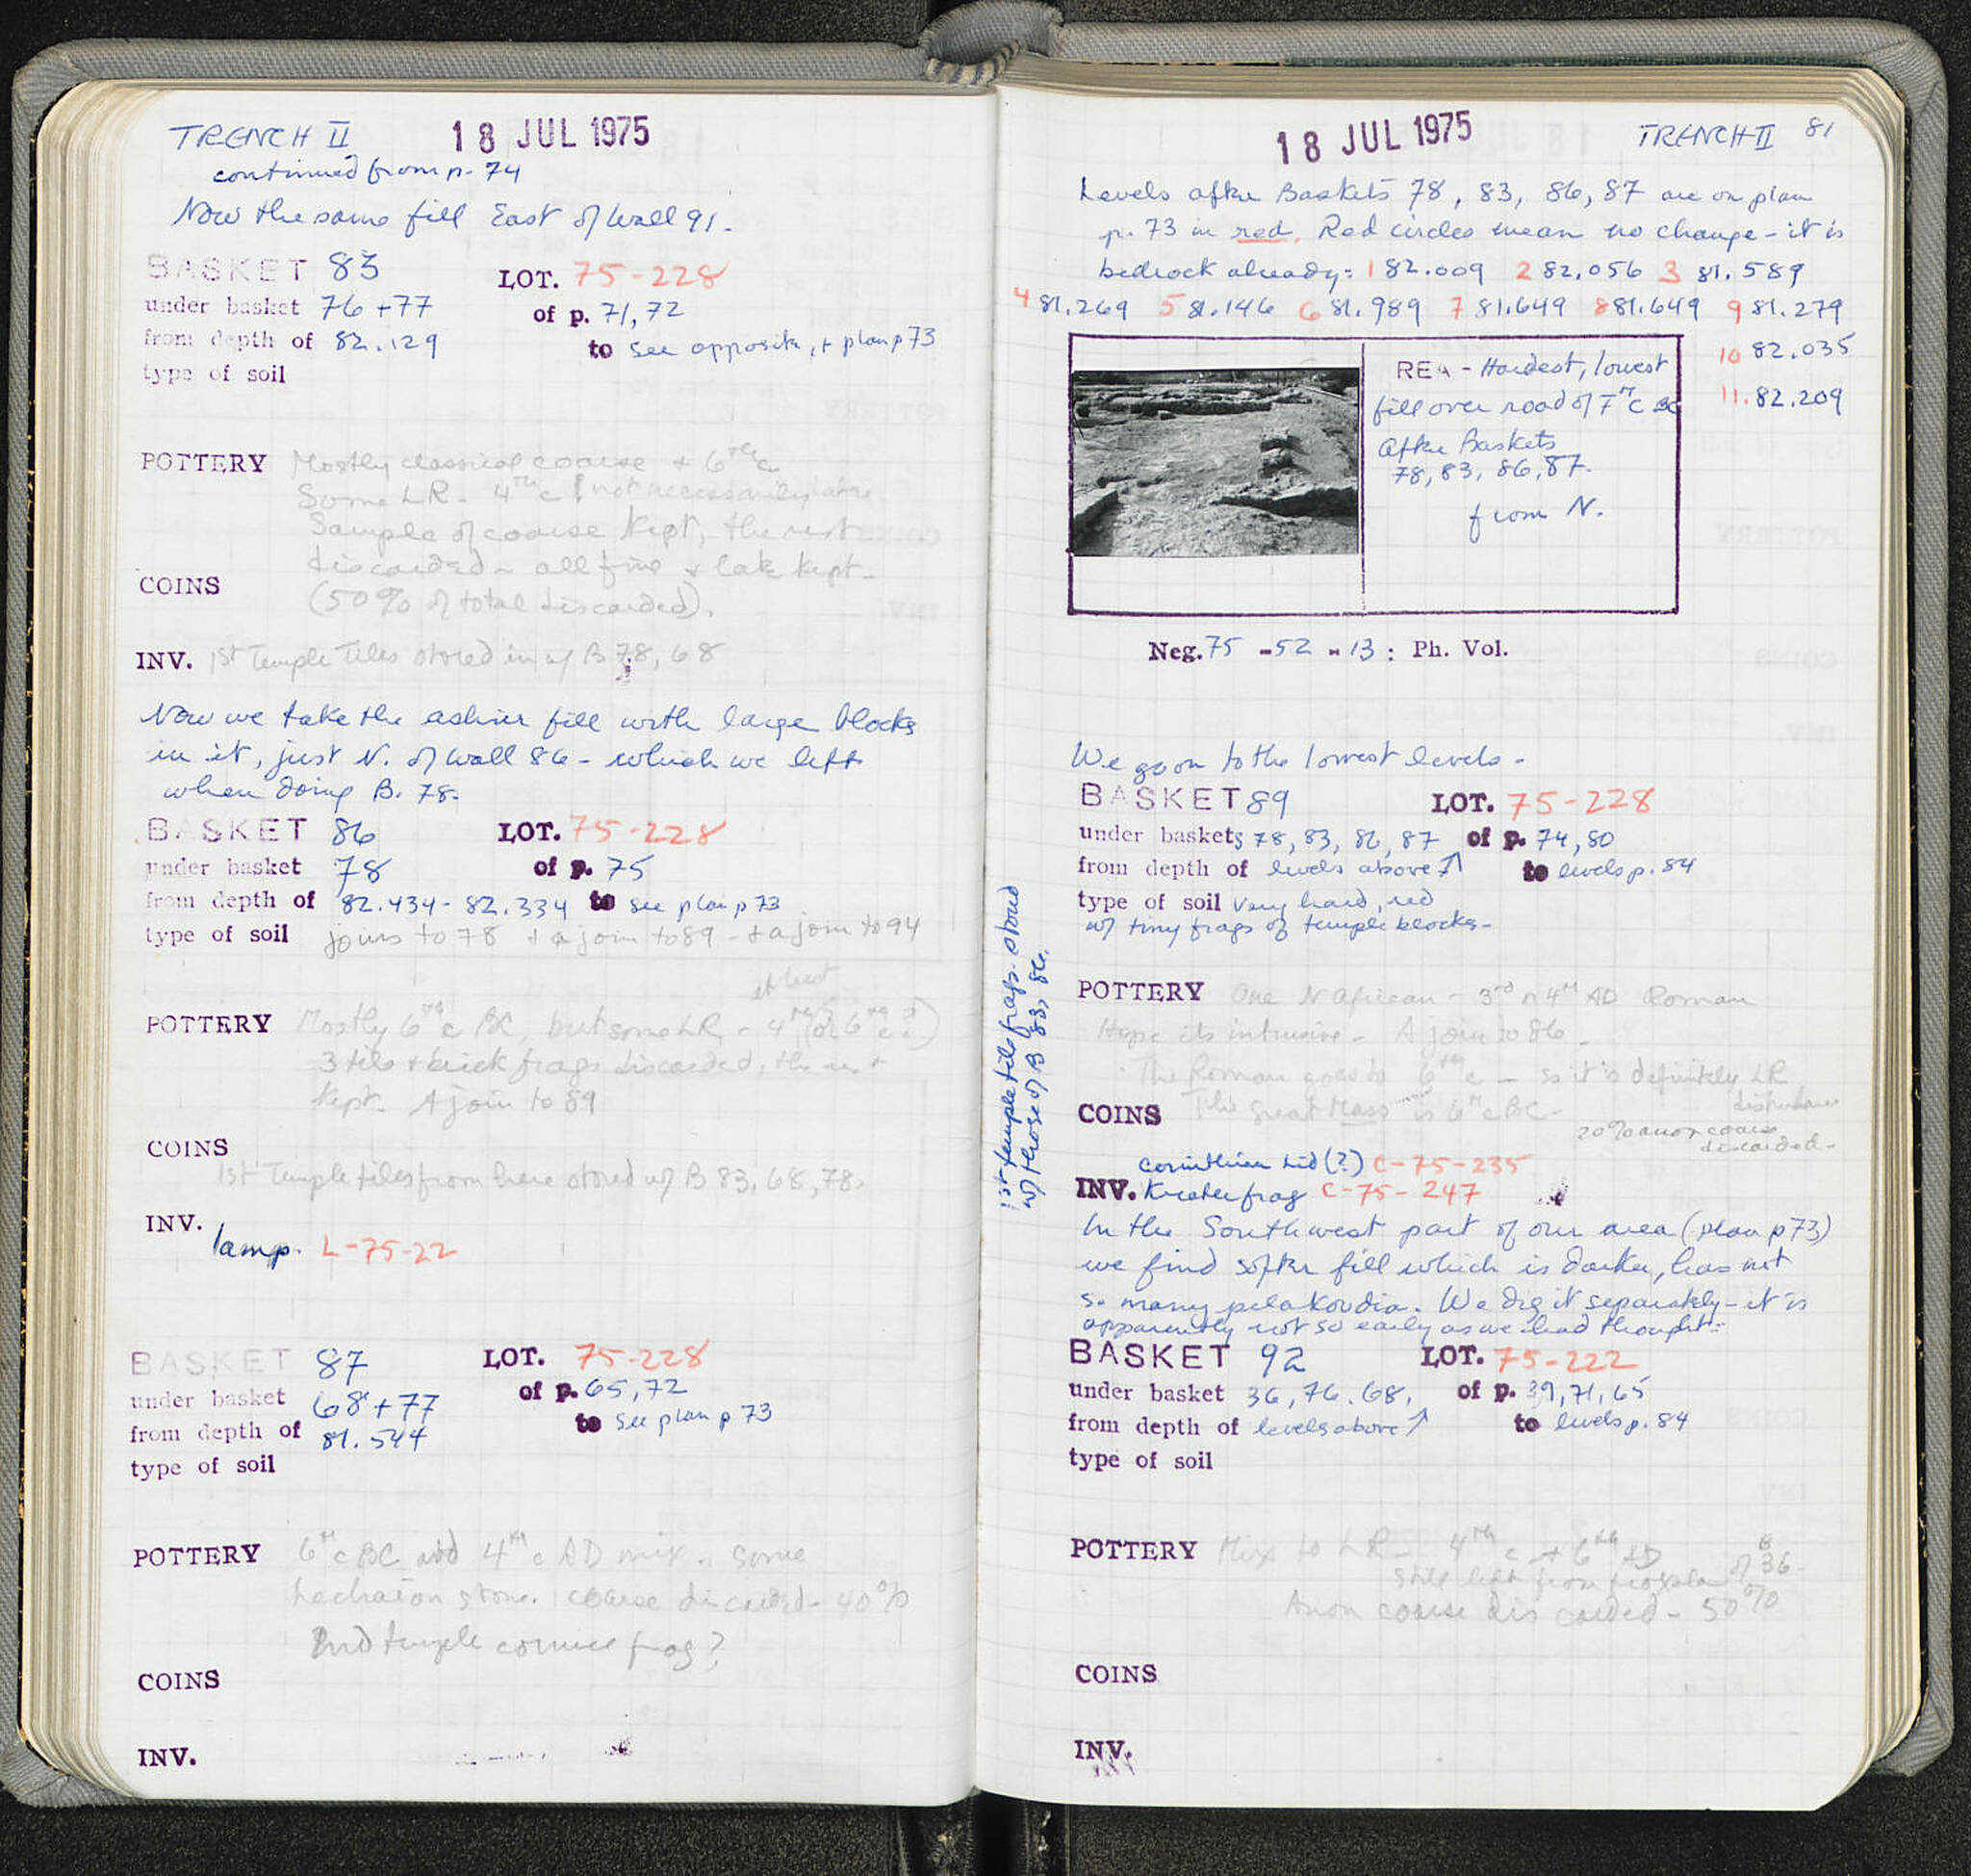 TRENCH II 18 JUL 1975
continued from p. 74
Now the same fill East of Wall 91.
BASKET 83 LOT. 75-228
under basket 76 + 77 of p. 71, 72
from depth of 82.129 to see opposite, + plan p 73
type of soil
POTTERY Mostly classical coarse + 6th c
Some LR - 4th c not necessarily
Sample of coarse kept, the rest
discarded - all fine + late kept -
COINS
(50% of total discarded).
INV. 1st Temple Tiles stored w/ B 78, 68
Now we take the ashier fill with large blocks
in it, just N. of wall 86 - which we left
when doing B. 78.
BASKET 86 LOT. 75-228
under basket 78 of p. 75
from depth of 82.434 - 82.334 to see plan p 73
type of soil joins to 78 + a join to 89 - + a join to 94
at least
POTTERY Mostly 6th c BC, but some LR - 4th (or 6th c?)
3 tile + brick frags discarded, the rest
kept. A join to 89
COINS
1st Temple tiles from here stored w/ B 83, 68, 78.
INV.
lamp. L-75-22
BASKET 87 LOT. 75-228
under basket 68 + 77 of p. 65, 72
from depth of 81.544 to see plan p 73
type of soil
POTTERY 6th c BC and 4th c AD mix. Some
Lechaion stone. coarse discarded - 40%
2nd temple cornice frag?
COINS
INV.
18 JUL 1975 TRENCH II 81
Levels after Baskets 78, 83, 86, 87 are on plan
p. 73 in red. Red circles mean no change - it is
bedrock already: 1 82.009 2 82.056 3 81.589
4 81.269 5 81.146 6 81.989 7 81.649 8 81.649 9 81.279
10 82.035
11. 82.209
REA - Hardest, lowest
fill over road of 7th c BC
After Baskets
78, 83, 86, 87.
from N.
Neg. 75 - 52 - 13 : Ph. Vol.
We go on to the lowest levels -
BASKET 89 LOT. 75-228
under baskets 78, 83, 86, 87 of p. 74, 80
from depth of levels above ↑ to levels p. 84
type of soil very hard, red
w/ tiny frags of temple blocks -
1st temple tile frags. stored
w/ those of B 83, 86.
POTTERY One N African - 3rd or 4th AD Roman
Hope its intrusive - A join to 86 -
The Roman goes to 6th c - so it is definitely LR
disturbance
COINS The Great Mass is 6th c BC -
20% anon coarse
discarded -
Corinthian Lid (?) C-75-235
INV. Krater frag C-75-247
In the Southwest part of our area (plan p 73)
we find softer fill which is darker, has not
so many pelakoudia. We dig it separately - it is
apparently not so early as we had thought:
BASKET 92 LOT. 75-222
under basket 36, 76, 68, of p. 39, 71, 65
from depth of levels above ↑ to levels p. 84
type of soil
POTTERY Mix to LR - 4th c + 6th AD
still left from of B 36 -
Anon coarse discarded - 50%
COINS
INV.